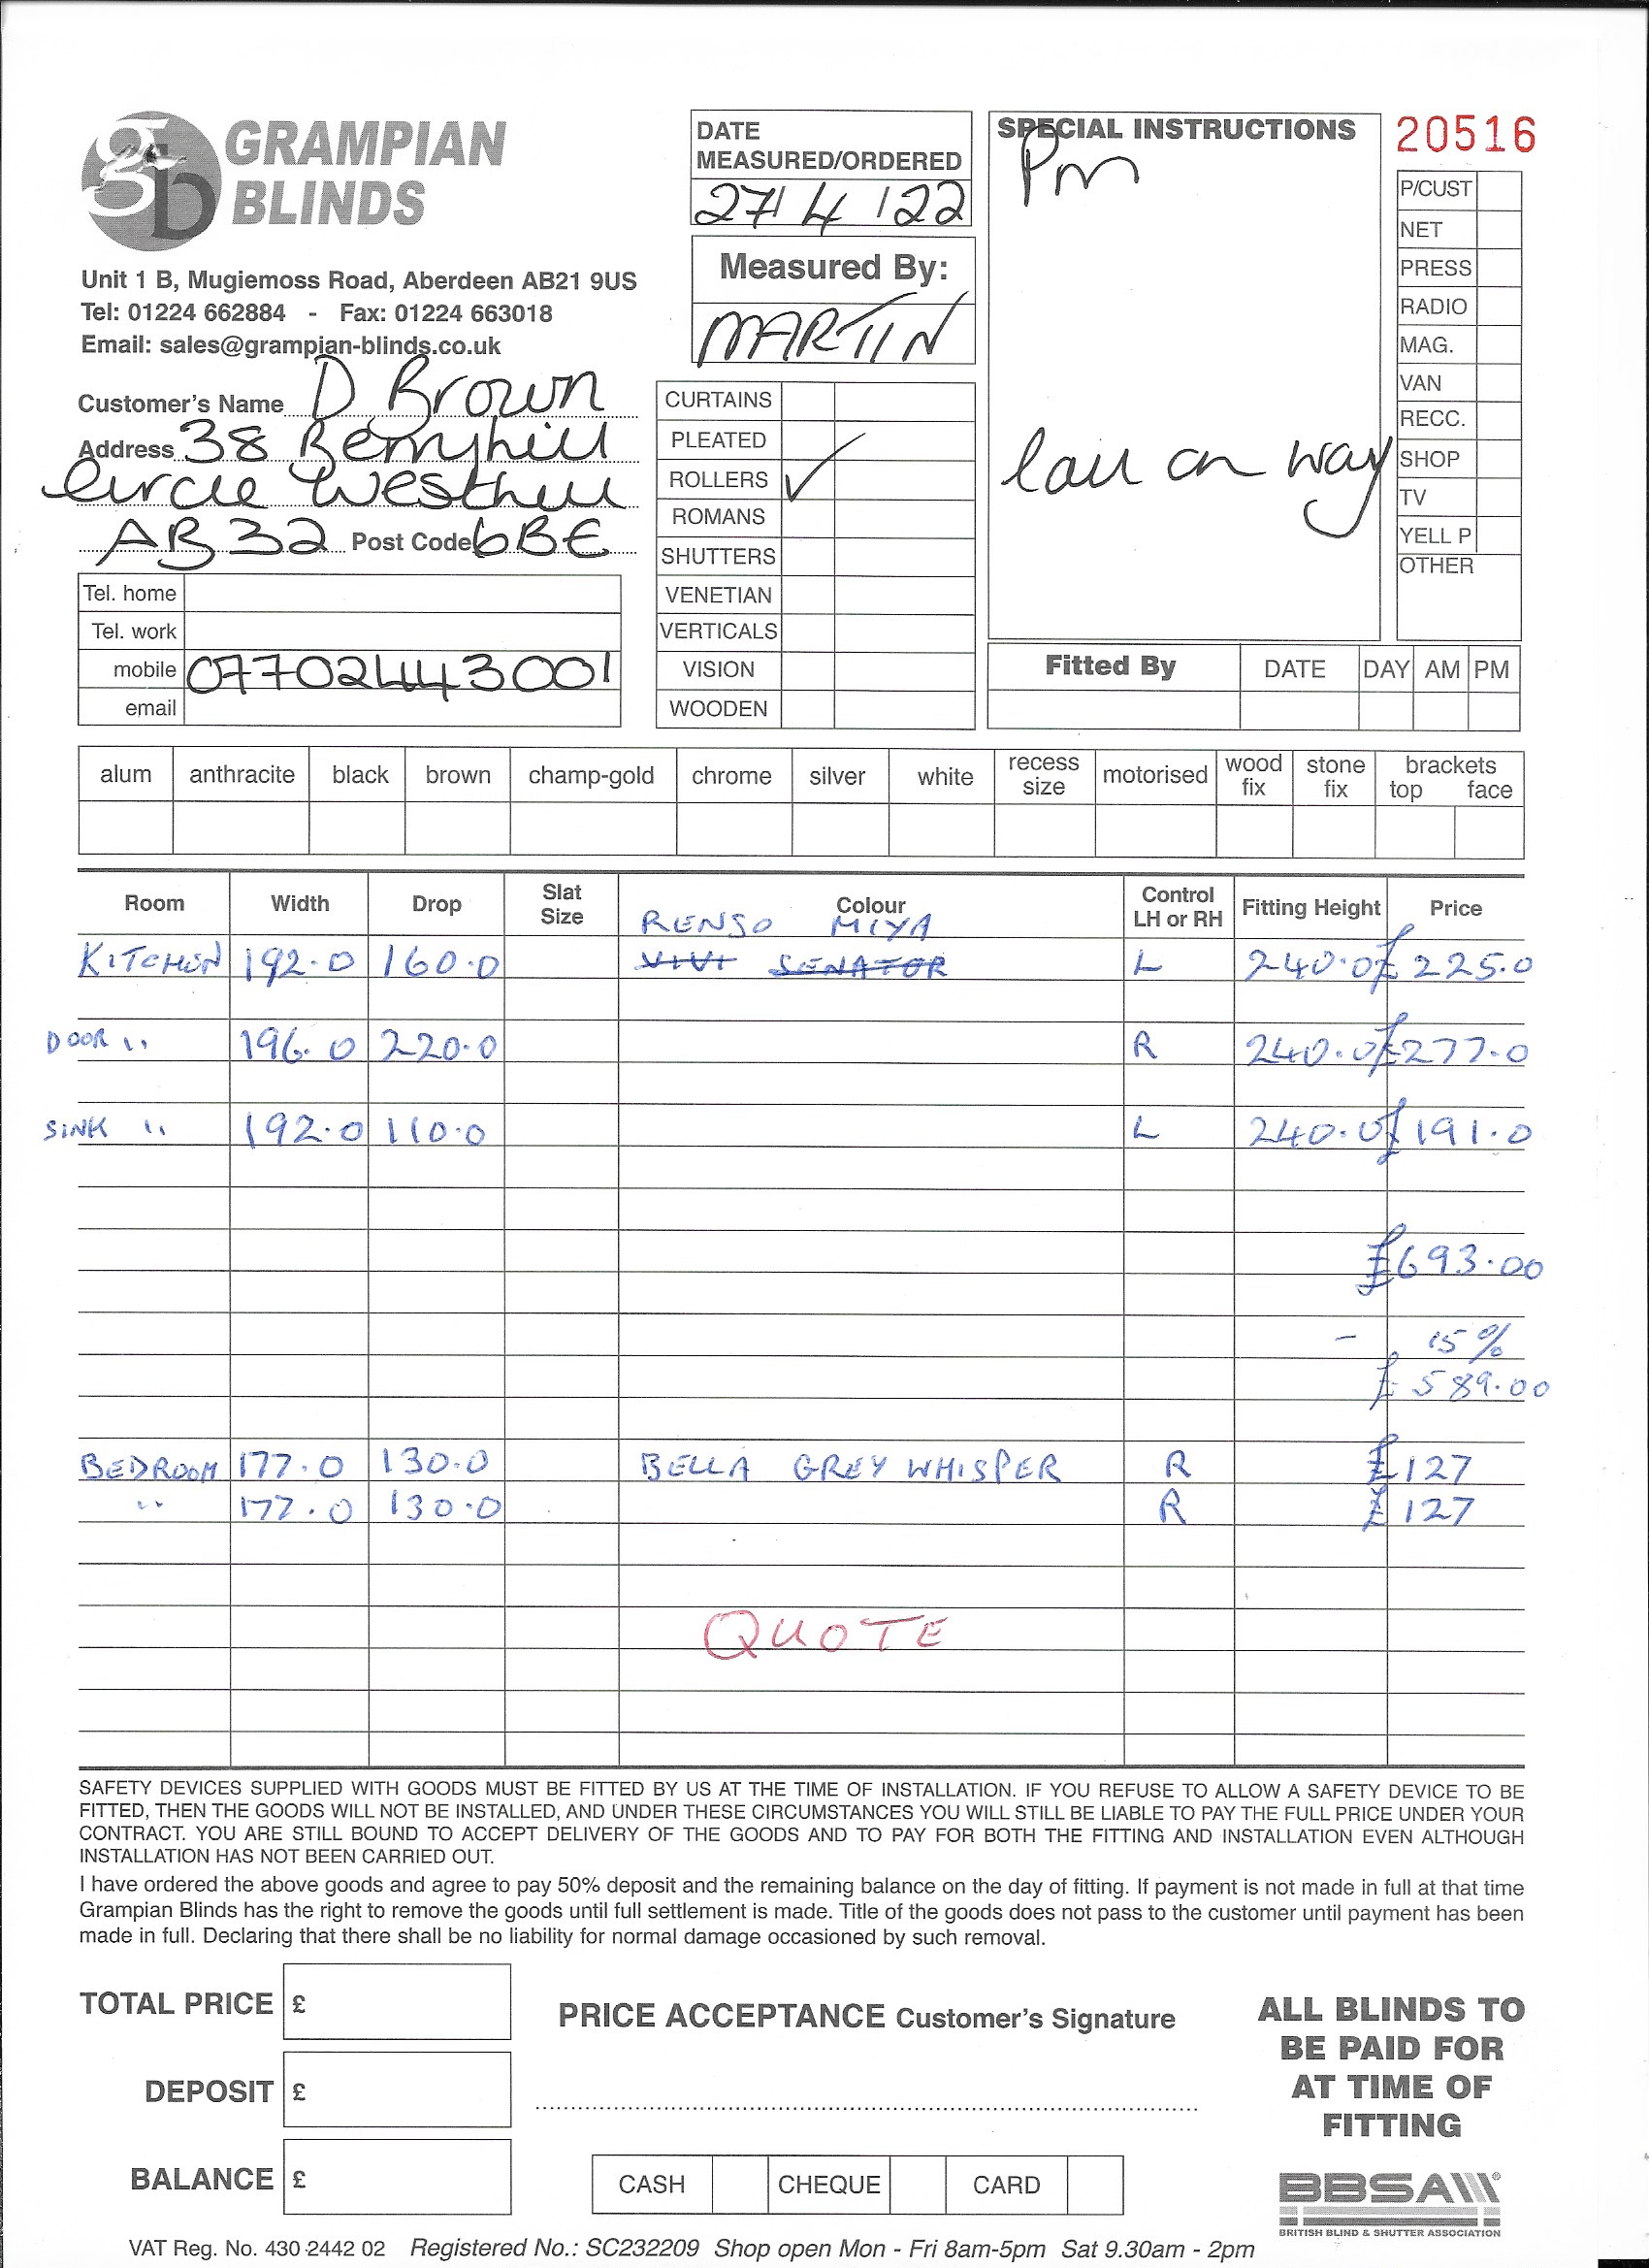 gb GRAMPIAN
BLINDS
Unit 1 B, Mugiemoss Road, Aberdeen AB21 9US
Tel: 01224 662884 - Fax: 01224 663018
Email: sales@grampian-blinds.co.uk
Customer's Name D Brown
Address 38 Berryhill
Circle Westhill
AB32 Post Code 6BE
Tel. home
Tel. work
mobile 07702443001
email
DATE
MEASURED/ORDERED
27/4/22
Measured By:
MARTIN
CURTAINS
PLEATED
ROLLERS ✓
ROMANS
SHUTTERS
VENETIAN
VERTICALS
VISION
WOODEN
SPECIAL INSTRUCTIONS
Pm
Call on way
20516
P/CUST
NET
PRESS
RADIO
MAG.
VAN
RECC.
SHOP
TV
YELL P
OTHER
Fitted By DATE DAY AM PM
alum anthracite black brown champ-gold chrome silver white recess size motorised wood fix stone fix brackets top face
Room Width Drop Slat Size Colour Control LH or RH Fitting Height Price
RENSO MIYA
KITCHEN 192.0 160.0 VIVI SENATOR L 240.0 £225.0
DOOR " 196.0 220.0 R 240.0 £277.0
SINK " 192.0 110.0 L 240.0 £191.0
£693.00
- 15%
£589.00
BEDROOM 177.0 130.0 BELLA GREY WHISPER R £127
" 177.0 130.0 R £127
QUOTE
SAFETY DEVICES SUPPLIED WITH GOODS MUST BE FITTED BY US AT THE TIME OF INSTALLATION. IF YOU REFUSE TO ALLOW A SAFETY DEVICE TO BE
FITTED, THEN THE GOODS WILL NOT BE INSTALLED, AND UNDER THESE CIRCUMSTANCES YOU WILL STILL BE LIABLE TO PAY THE FULL PRICE UNDER YOUR
CONTRACT. YOU ARE STILL BOUND TO ACCEPT DELIVERY OF THE GOODS AND TO PAY FOR BOTH THE FITTING AND INSTALLATION EVEN ALTHOUGH
INSTALLATION HAS NOT BEEN CARRIED OUT.
I have ordered the above goods and agree to pay 50% deposit and the remaining balance on the day of fitting. If payment is not made in full at that time
Grampian Blinds has the right to remove the goods until full settlement is made. Title of the goods does not pass to the customer until payment has been
made in full. Declaring that there shall be no liability for normal damage occasioned by such removal.
TOTAL PRICE £
DEPOSIT £
BALANCE £
PRICE ACCEPTANCE Customer's Signature
CASH CHEQUE CARD
ALL BLINDS TO
BE PAID FOR
AT TIME OF
FITTING
BBSA
BRITISH BLIND & SHUTTER ASSOCIATION
VAT Reg. No. 430 2442 02 Registered No.: SC232209 Shop open Mon - Fri 8am-5pm Sat 9.30am - 2pm